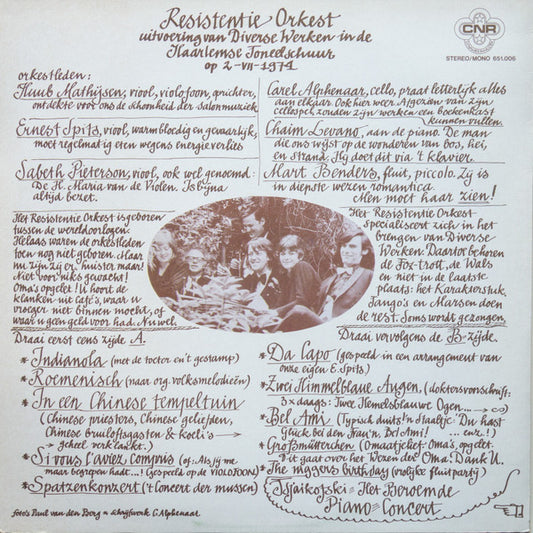 Resistentie Orkest
uitvoering van Diverse Werken in de
Haarlemse Toneelschuur
op 2-VII-1974
CNR
STEREO/MONO 651.006
orkestleden:
Huub Mathijsen, viool, violofoon, oprichter,
ontdekte voor ons de schoonheid der salonmuziek
Ernest Spits, viool, warmbloedig en gevaarlijk,
moet regelmatig eten wegens energieverlies
Sabeth Pieterson, viool, ook wel genoemd:
De H. Maria van de Violen. Is bijna
altijd bezet.
Carel Alphenaar, cello, praat letterlijk alles
aan elkaar. Ook hier weer. Afgezien van zijn
cellospel zouden zijn werken een boekenkast
kunnen vullen.
Chaim Levano, aan de piano. De man
die ons wijst op de wonderen van bos, hei,
en strand. Hij doet dit via 't klavier.
Mart Benders, fluit, piccolo. Zij is
in dienste wezen romantica.
Men moet haar zien!
Het Resistentie Orkest is geboren
tussen de wereldoorlogen.
Helaas waren de orkestleden
toen nog niet geboren. Maar
nu zijn zij er. Luister maar!
Niet voor niks gewacht!
Oma's opgelet! U hoort de
klanken uit café's, waar u
vroeger niet binnen mocht, of
waar u geen geld voor had. Nu wel.
Het Resistentie Orkest
specialiseert zich in het
brengen van Diverse
Werken. Daartoe behoren
de Fox-trott, de Wals
en niet in de laatste
plaats: het Karakterstuk.
Tango's en Marsen doen
de rest. Soms wordt gezongen.
Draai eerst eens zijde A.
* Indianola (met de toeter en 't gestamp)
* Roemenisch (naar org. volksmelodieën)
* In een Chinese tempeltuin
(Chinese priesters, Chinese geliefden,
Chinese bruiloftsgasten & koeli's
geheel verklankt.)
* Si vous l'aviez compris (of: Als jij me
maar begrepen hadt...! (gespeeld op de VIOLOFOON)
* Spatzenkonzert ('t Concert der mussen)
Draai vervolgens de B-zijde.
* Da Capo (gespeeld in een arrangement van
onze eigen E. Spits)
* Zwei Himmelblaue Augen (doktersvoorschrift:
3 x daags: Twee Hemelsblauwe Ogen...
* Bel Ami (Typisch duits! 'n Staaltje: Du hast
Glück bei den Frau'n, Bel Ami! ...enz.!)
* Großmütterchen (Omaatje lief. Oma's, opgelet:
't gaat over het Wezen der Oma! Dank U.
* The niggers birthday (vrolijke fluitpartij)
* Tsjaikofski = Het Beroemde
Piano = Concert
foto's Paul van den Berg ~ schrijfwerk C. Alphenaar